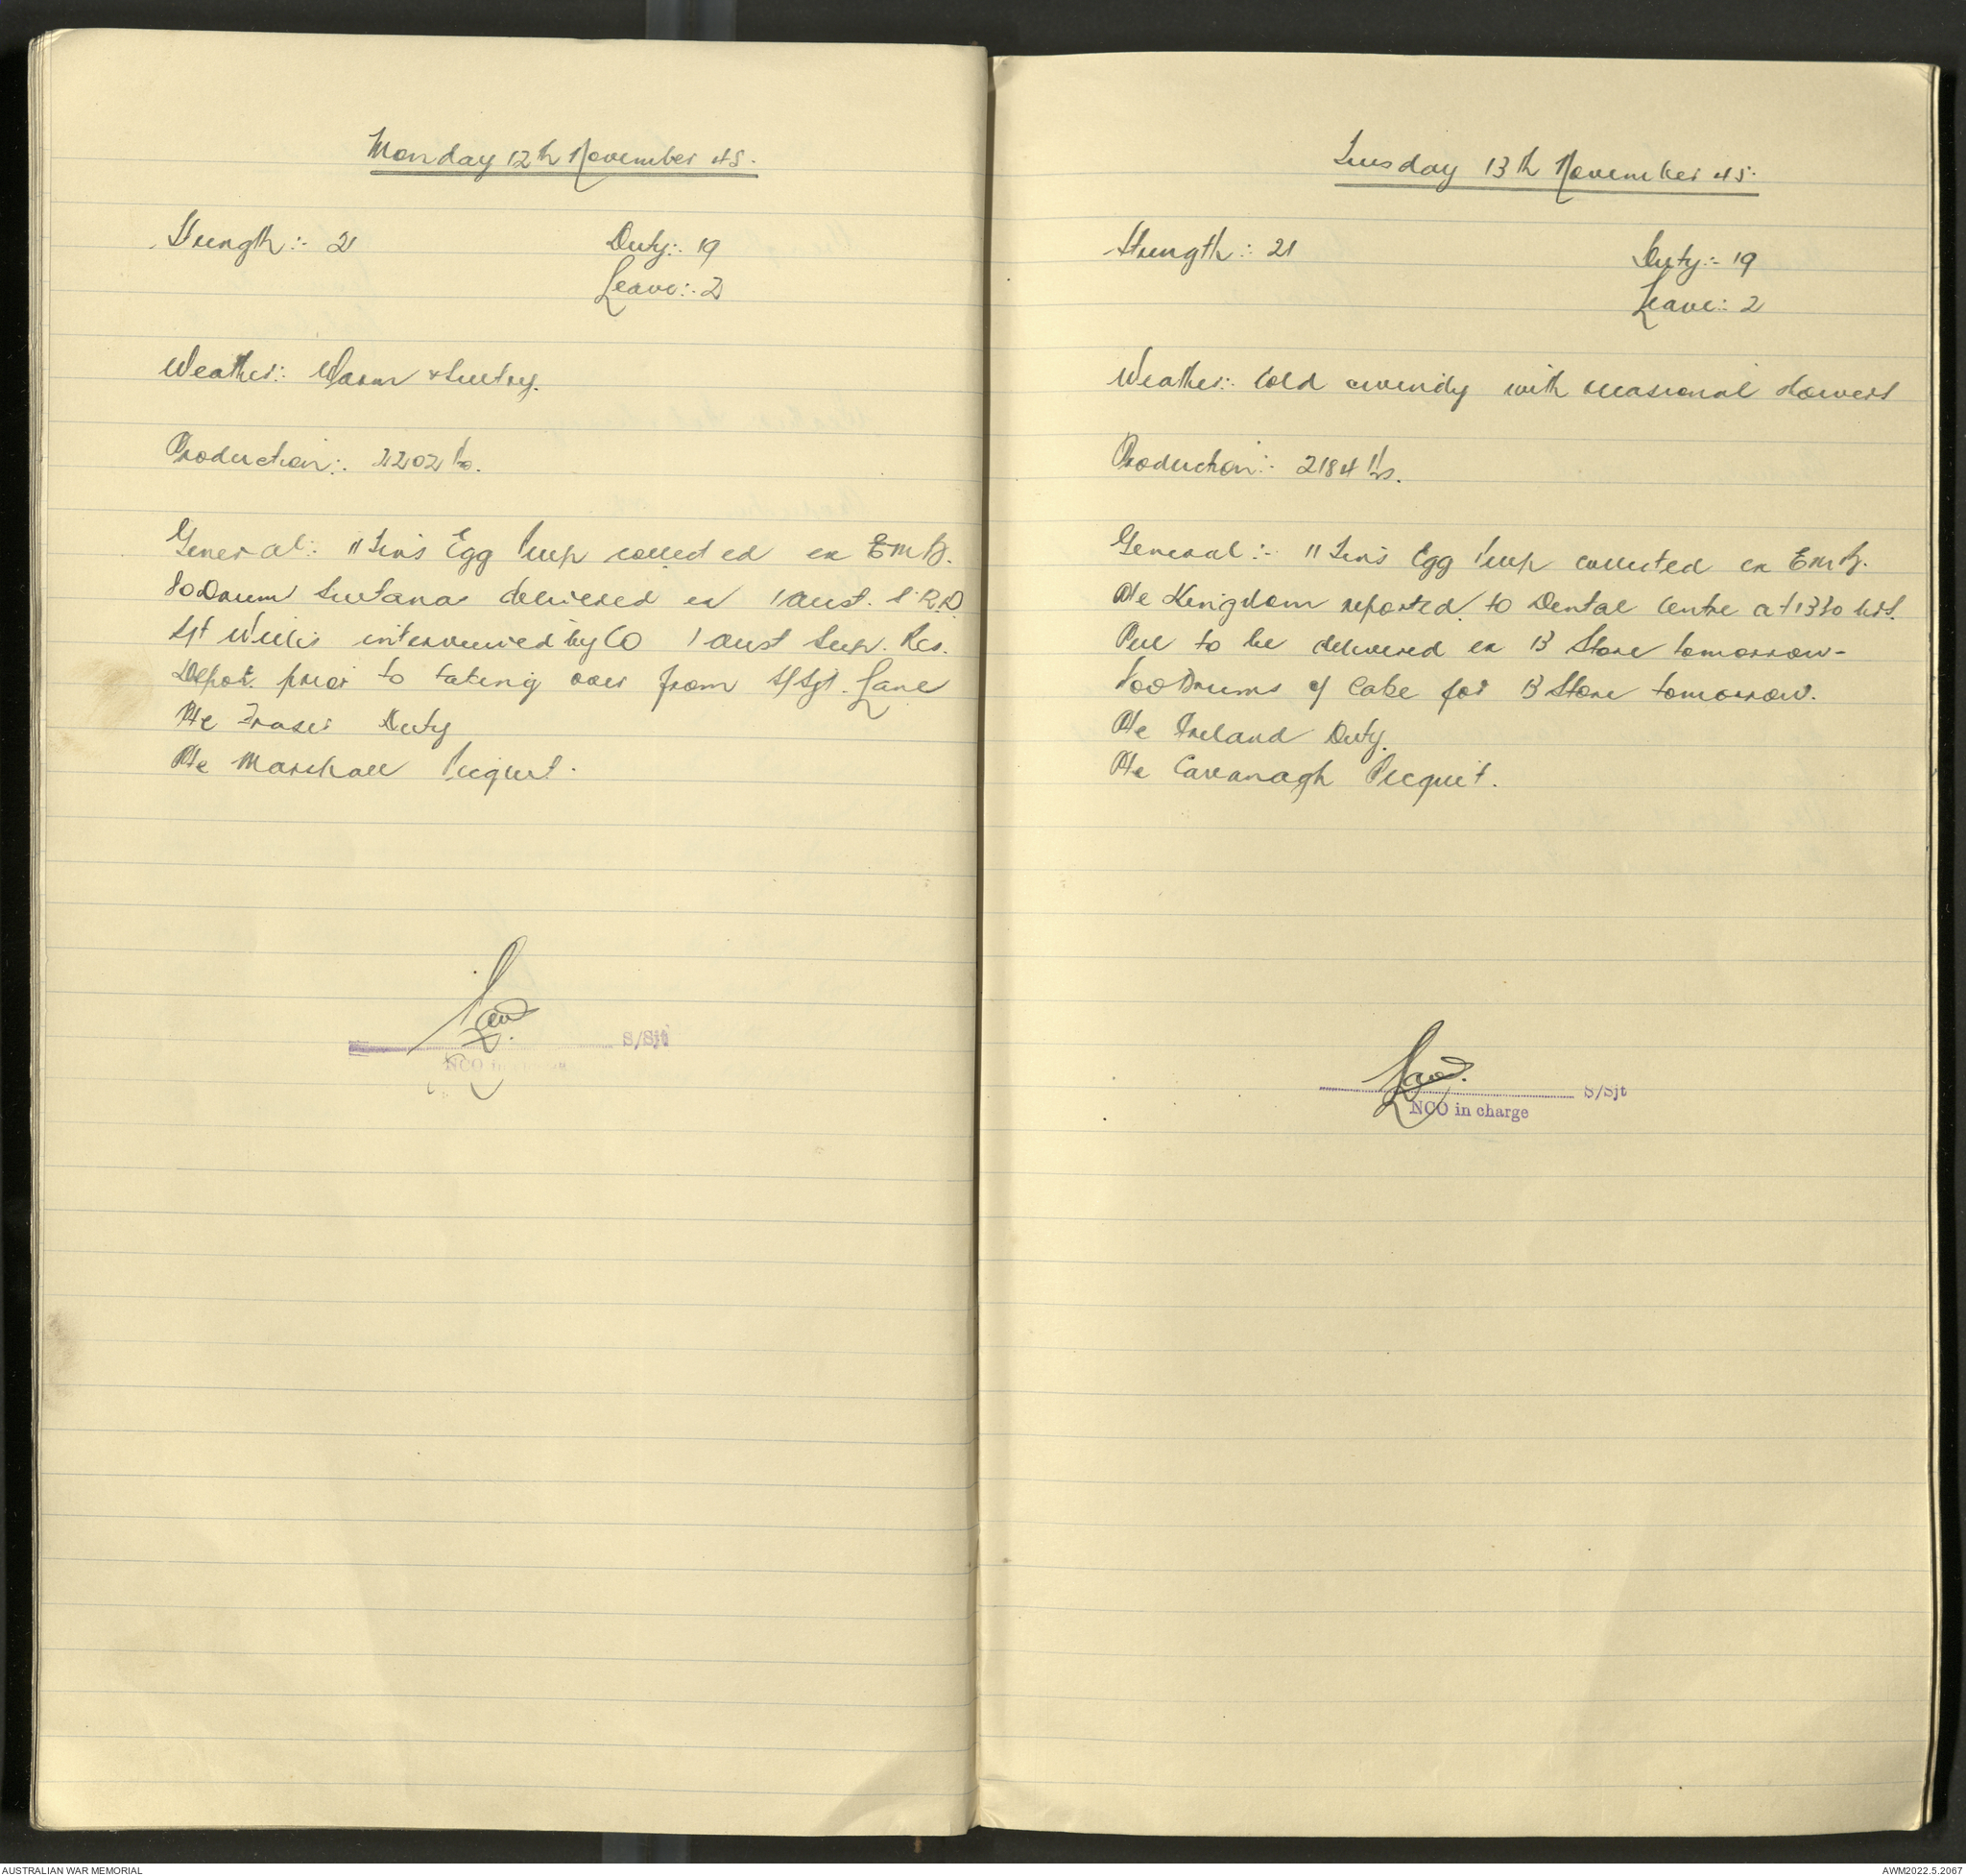 Monday 12th November 45.
Strength:- 21 Duty:- 19
Leave:- 2
Weather:- Warm & Sultry.
Production:- 2202 lbs.
General:- 11 Tins Egg Pulp collected ex EMB.
80 Drum Sultana delivered ex 1 Aust. S.R.D
Sgt Willis interviewed by CO 1 Aust Sup. Res.
Depot. prior to taking over from S/Sgt. Lane
Pte Fraser Duty
Pte Marshall Picquet.
Lane
S/Sjt
NCO in charge
Tuesday 13th November 45.
Strength:- 21 Duty:- 19
Leave:- 2
Weather:- Cold & windy with occasional showers
Production:- 2184 lbs.
General:- 11 Tins Egg Pulp collected ex EMB.
Pte Kingdom reported to Dental Centre at 1330 hrs.
Peel to be delivered ex B Store tomorrow-
100 Drums of Cake for B Store tomorrow.
Pte Ireland Duty.
Pte Cavanagh Picquet.
Lane.
S/Sjt
NCO in charge
AUSTRALIAN WAR MEMORIAL AWM2022.5.2067